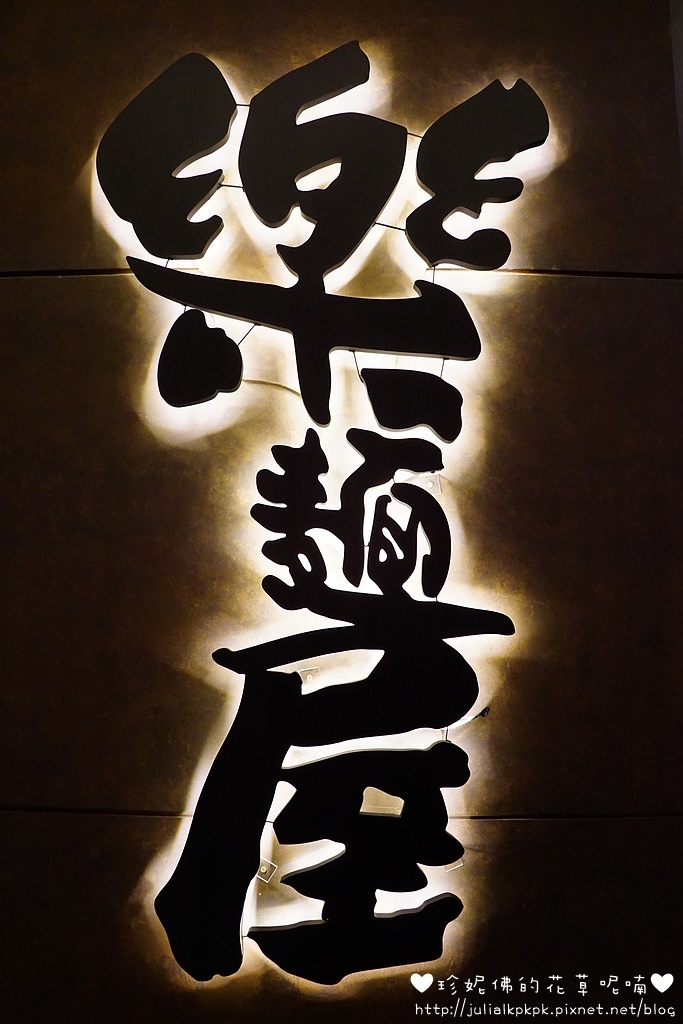 樂麵屋
♥珍妮佛的花草呢喃♥
http://julialkpkpk.pixnet.net/blog